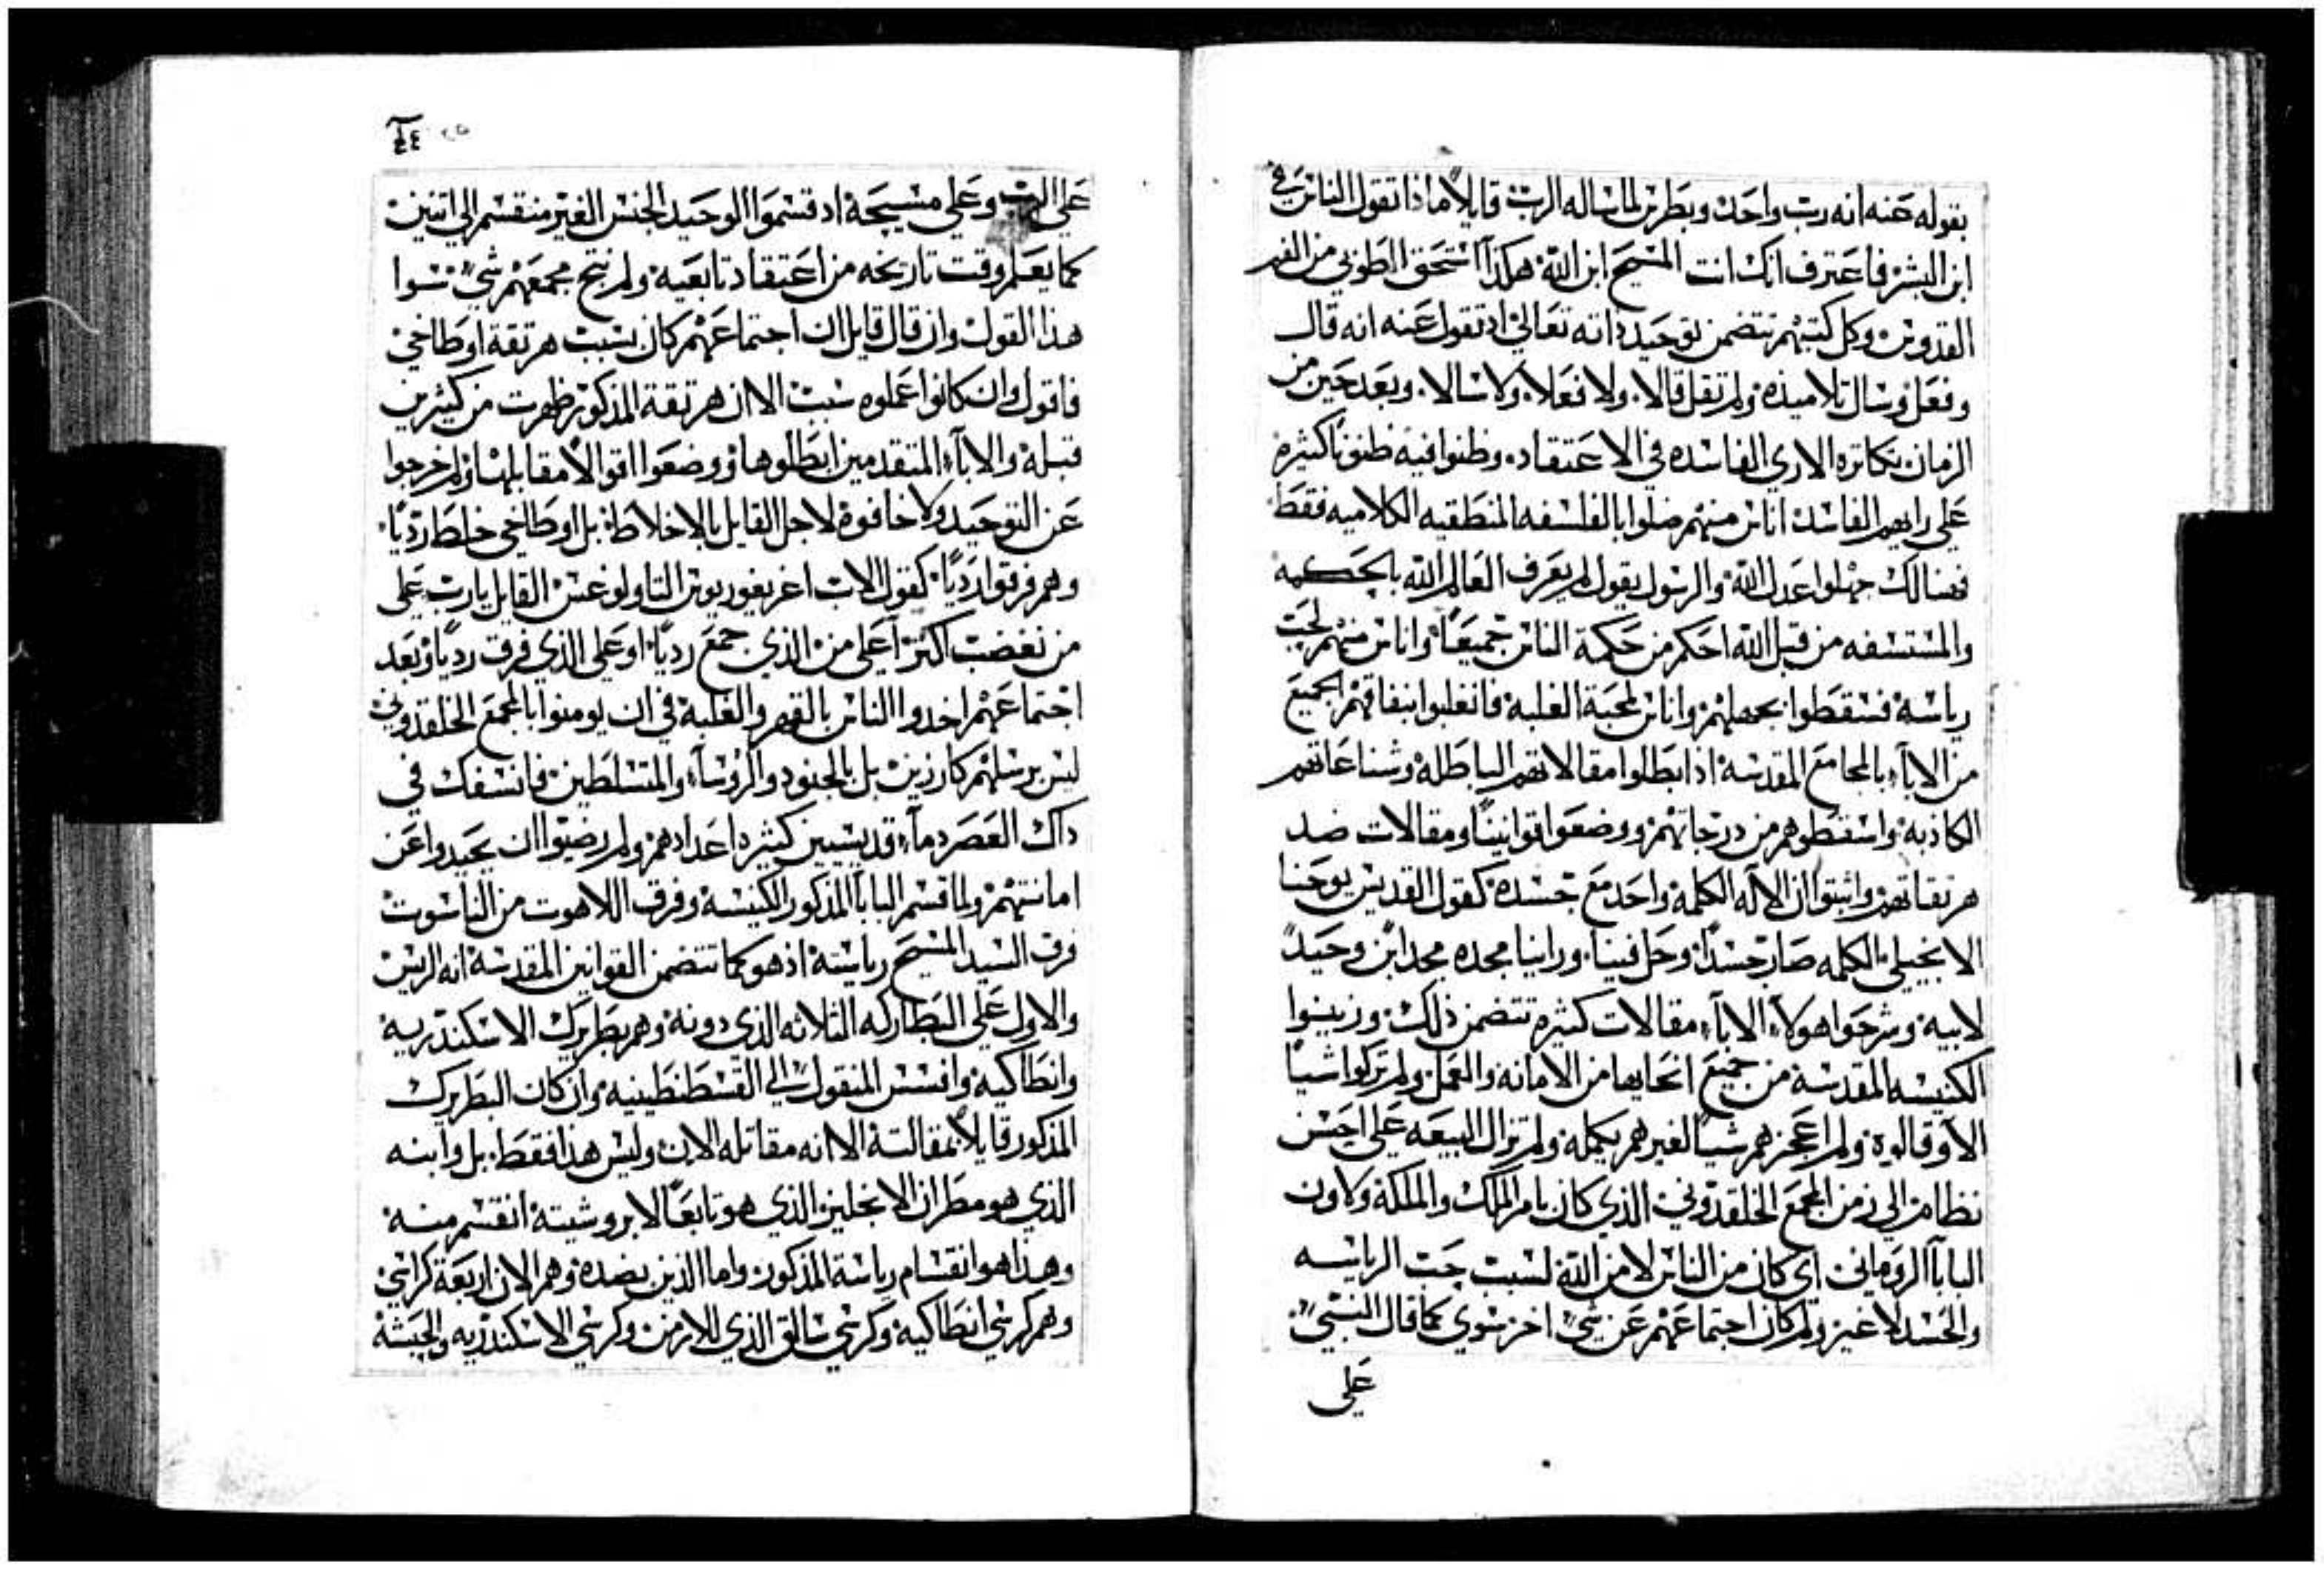 بقوله عنه انه رب واحد وبطرس لما ساله الرب قايلاً ماذا تقول الناس في
ابن البشر فاعترف انك انت المسيح ابن الله هكذا استحق الطوبي من الفم
القدوس وكل كتبهم تتضمن توحيد ذاته تعالي اذ تقول عنه انه قال
وفعل وسال تلاميذه ولم تقل قالا ولا فعلا ولا سالا وبعد حين من
الزمان تكاتره الاري الفاسده في الاعتقاد وظنوا فيه ظنوناً كثيره
علي رايهم الفاسد اناس منهم ضلوا بالفلسفه المنطقيه الكلاميه فقط
فهنالك جهلوا عدل الله والرسول يقول لم يعرف العالم الله بالحكمه
والمستسفه من قبل الله احكم من حكمة الناس جميعاً واناس منهم لحب
رياسة فسقطوا بجهلهم واناس لمحبة الغلبه فانغلبوا بنفاقهم الجميع
من الاباء بالمجامع المقدسه اذ ابطلوا مقالاتهم الباطله وشناعاتهم
الكاذبه واسقطوهم من درجاتهم ووضعوا قوانيناً ومقالات ضد
هرتقاتهم واثبتوا ان الاله الكلمه واحد مع جسده كقول القديس يوحنا
الانجيلي الكلمه صار جسداً وحل فينا وراينا مجده مجد ابن وحيد
لابيه وشرحوا هولاء الاباء مقالات كثيره تتضمن ذلك وزينوا
الكنيسه المقدسه من جميع انحايها من الامانه والعمل ولم تركوا شياً
الا وقالوه ولم اعجزهم شياً لغيرهم يكمله ولم تزال البيعه علي احسن
نظام الي زمن المجمع الخلقدوني الذي كان بامر الملك والملكة ولاون
البابا الروماني اي كان من الناس لا من الله لسبب حب الرياسه
والحسد لا غير ولم كان اجتماعهم عن شي اخر سوي كما قال النبي
علي
٤٤
علي الرب وعلي مسيحه اد قسموا الوحيد الجنس الغير منقسم الي اتنين
كما يعلم وقت تاريخه من اعتقاد تابعيه ولم نتج مجمعهم شي سوا
هذا القول وان قال قايل ان اجتماعهم كان بسبب هرتقة اوطاخي
فاقول وان كانوا عملوه سبب الا ان هرتقة المذكور ظهرت من كثيرين
قبله والاباء المتقدمين ابطلوها ووضعوا اقوالاً مقابلها ولم خرجوا
عن التوحيد ولا خافوه لاجل القايل بالاخلاط بل اوطاخي خلط ردياً
وهم فرقوا ردياً كقول الاب اغريغوريوس التاولوغس القايل يارب علي
من تغضب اكثر اعلي من الذي جمع ردياً او علي الذي فرق ردياً وبعد
اجتماعهم اخدوا الناس بالقهر والغلبة في ان يومنوا بالمجمع الخلقدوني
ليس برسلهم كارزين بل بالجنود والروساء والمتسلطين فانسفك في
داك العصر دماء قديسيين كثيره اعدادهم ولم رضيوا ان يحيدوا عن
امانتهم ولما قسم البابا المذكور الكنيسه وفرق اللاهوت من الناسوت
فرق السيد المسيح رياسته اذ هو كما تتضمن القوانين المقدسه انه الريس
والاول علي البطاركه الثلاثه الذي دونه وهم بطريرك الاسكندريه
وانطاكيه وافسس المنقول الي القسطنطينيه وان كان البطريرك
المذكور قايلاً بمقالته الا انه مقاتله الان وليس هذا فقط بل وابنه
الذي هو مطران الانجليز الذي هو تابعاً لابروشيته انقسم منه
وهذا هو انقسام رياسة المذكور واما الذين بضده وهم الان اربعة كراسي
وهم كرسي انطاكيه وكرسي سالق الذي للارمن وكرسي الاسكندريه والحبشه